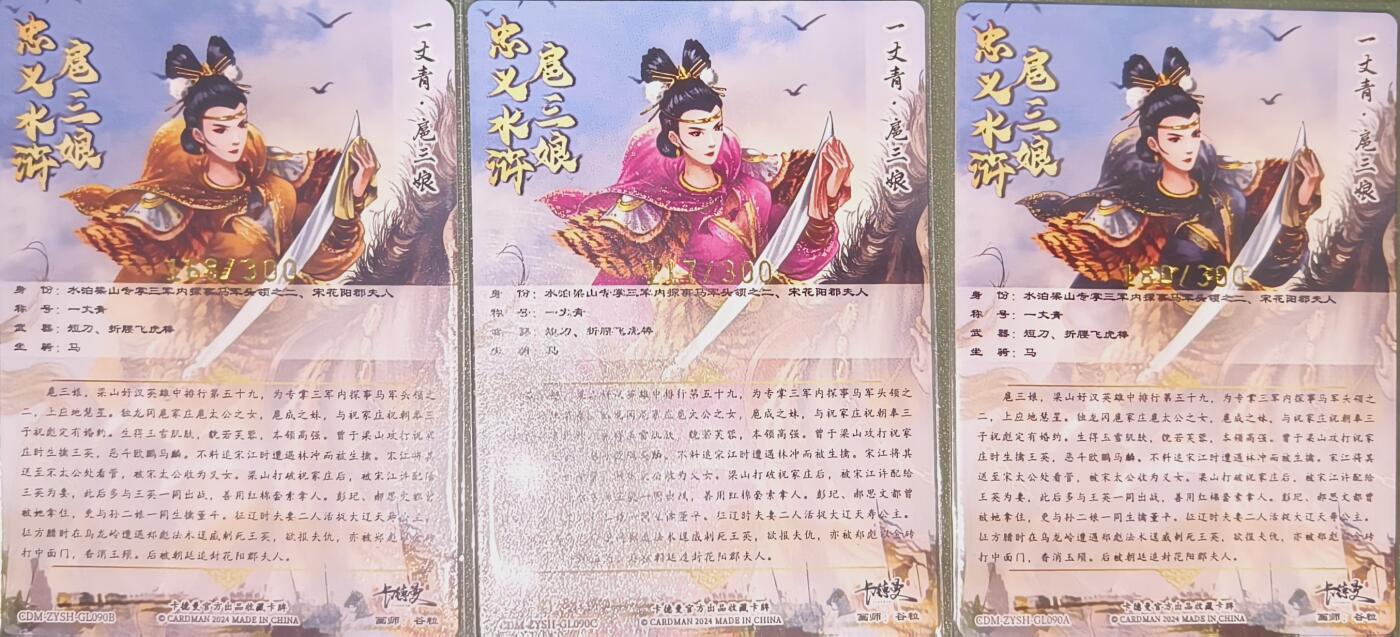 忠义水浒
扈三娘
一丈青·扈三娘
168/300
身 份：水泊梁山专掌三军内探事马军头领之二、宋花阳郡夫人
称 号：一丈青
武 器：短刀、折腰飞虎棒
坐 骑：马
扈三娘，梁山好汉英雄中排行第五十九，为专掌三军内探事马军头领之
二，上应地慧星。独龙冈扈家庄扈太公之女，扈成之妹，与祝家庄祝朝奉三
子祝彪定有婚约。生得玉雪肌肤，貌若芙蓉，本领高强。曾于梁山攻打祝家
庄时生擒王英，恶斗欧鹏马麟。不料追宋江时遭遇林冲而被生擒。宋江将其
送至宋太公处看管，被宋太公收为义女。梁山打破祝家庄后，被宋江许配给
王英为妻，此后多与王英一同出战，善用红棉套索拿人。彭玘、郝思文都曾
被她拿住，更与孙二娘一同生擒董平。征辽时夫妻二人活捉大辽天寿公主。
征方腊时在乌龙岭遭遇郑彪法术逞威刺死王英，欲报夫仇，亦被郑彪以金砖
打中面门，香消玉殒。后被朝廷追封花阳郡夫人。
卡德曼
CDM-ZYSH-GL090B
卡德曼官方出品收藏卡牌
© CARDMAN 2024 MADE IN CHINA
画师：谷粒
忠义水浒
扈三娘
一丈青·扈三娘
117/300
身 份：水泊梁山专掌三军内探事马军头领之二、宋花阳郡夫人
称 号：一丈青
武 器：短刀、折腰飞虎棒
坐 骑：马
好汉英雄中排行第五十九，为专掌三军内探事马军头领之
扈家庄扈太公之女，扈成之妹，与祝家庄祝朝奉三
玉雪肌肤，貌若芙蓉，本领高强。曾于梁山攻打祝家
马麟。不料追宋江时遭遇林冲而被生擒。宋江将其
收为义女。梁山打破祝家庄后，被宋江许配给
一同出战，善用红棉套索拿人。彭玘、郝思文都曾
一同生擒董平。征辽时夫妻二人活捉大辽天寿公主。
法术逞威刺死王英，欲报夫仇，亦被郑彪以金砖
后被朝廷追封花阳郡夫人。
卡德曼
CDM-ZYSH-GL090C
卡德曼官方出品收藏卡牌
© CARDMAN 2024 MADE IN CHINA
画师：谷粒
忠义水浒
扈三娘
一丈青·扈三娘
188/300
身 份：水泊梁山专掌三军内探事马军头领之二、宋花阳郡夫人
称 号：一丈青
武 器：短刀、折腰飞虎棒
坐 骑：马
扈三娘，梁山好汉英雄中排行第五十九，为专掌三军内探事马军头领之
二，上应地慧星。独龙冈扈家庄扈太公之女，扈成之妹，与祝家庄祝朝奉三
子祝彪定有婚约。生得玉雪肌肤，貌若芙蓉，本领高强。曾于梁山攻打祝家
庄时生擒王英，恶斗欧鹏马麟。不料追宋江时遭遇林冲而被生擒。宋江将其
送至宋太公处看管，被宋太公收为义女。梁山打破祝家庄后，被宋江许配给
王英为妻，此后多与王英一同出战，善用红棉套索拿人。彭玘、郝思文都曾
被她拿住，更与孙二娘一同生擒董平。征辽时夫妻二人活捉大辽天寿公主。
征方腊时在乌龙岭遭遇郑彪法术逞威刺死王英，欲报夫仇，亦被郑彪以金砖
打中面门，香消玉殒。后被朝廷追封花阳郡夫人。
卡德曼
CDM-ZYSH-GL090A
卡德曼官方出品收藏卡牌
© CARDMAN 2024 MADE IN CHINA
画师：谷粒